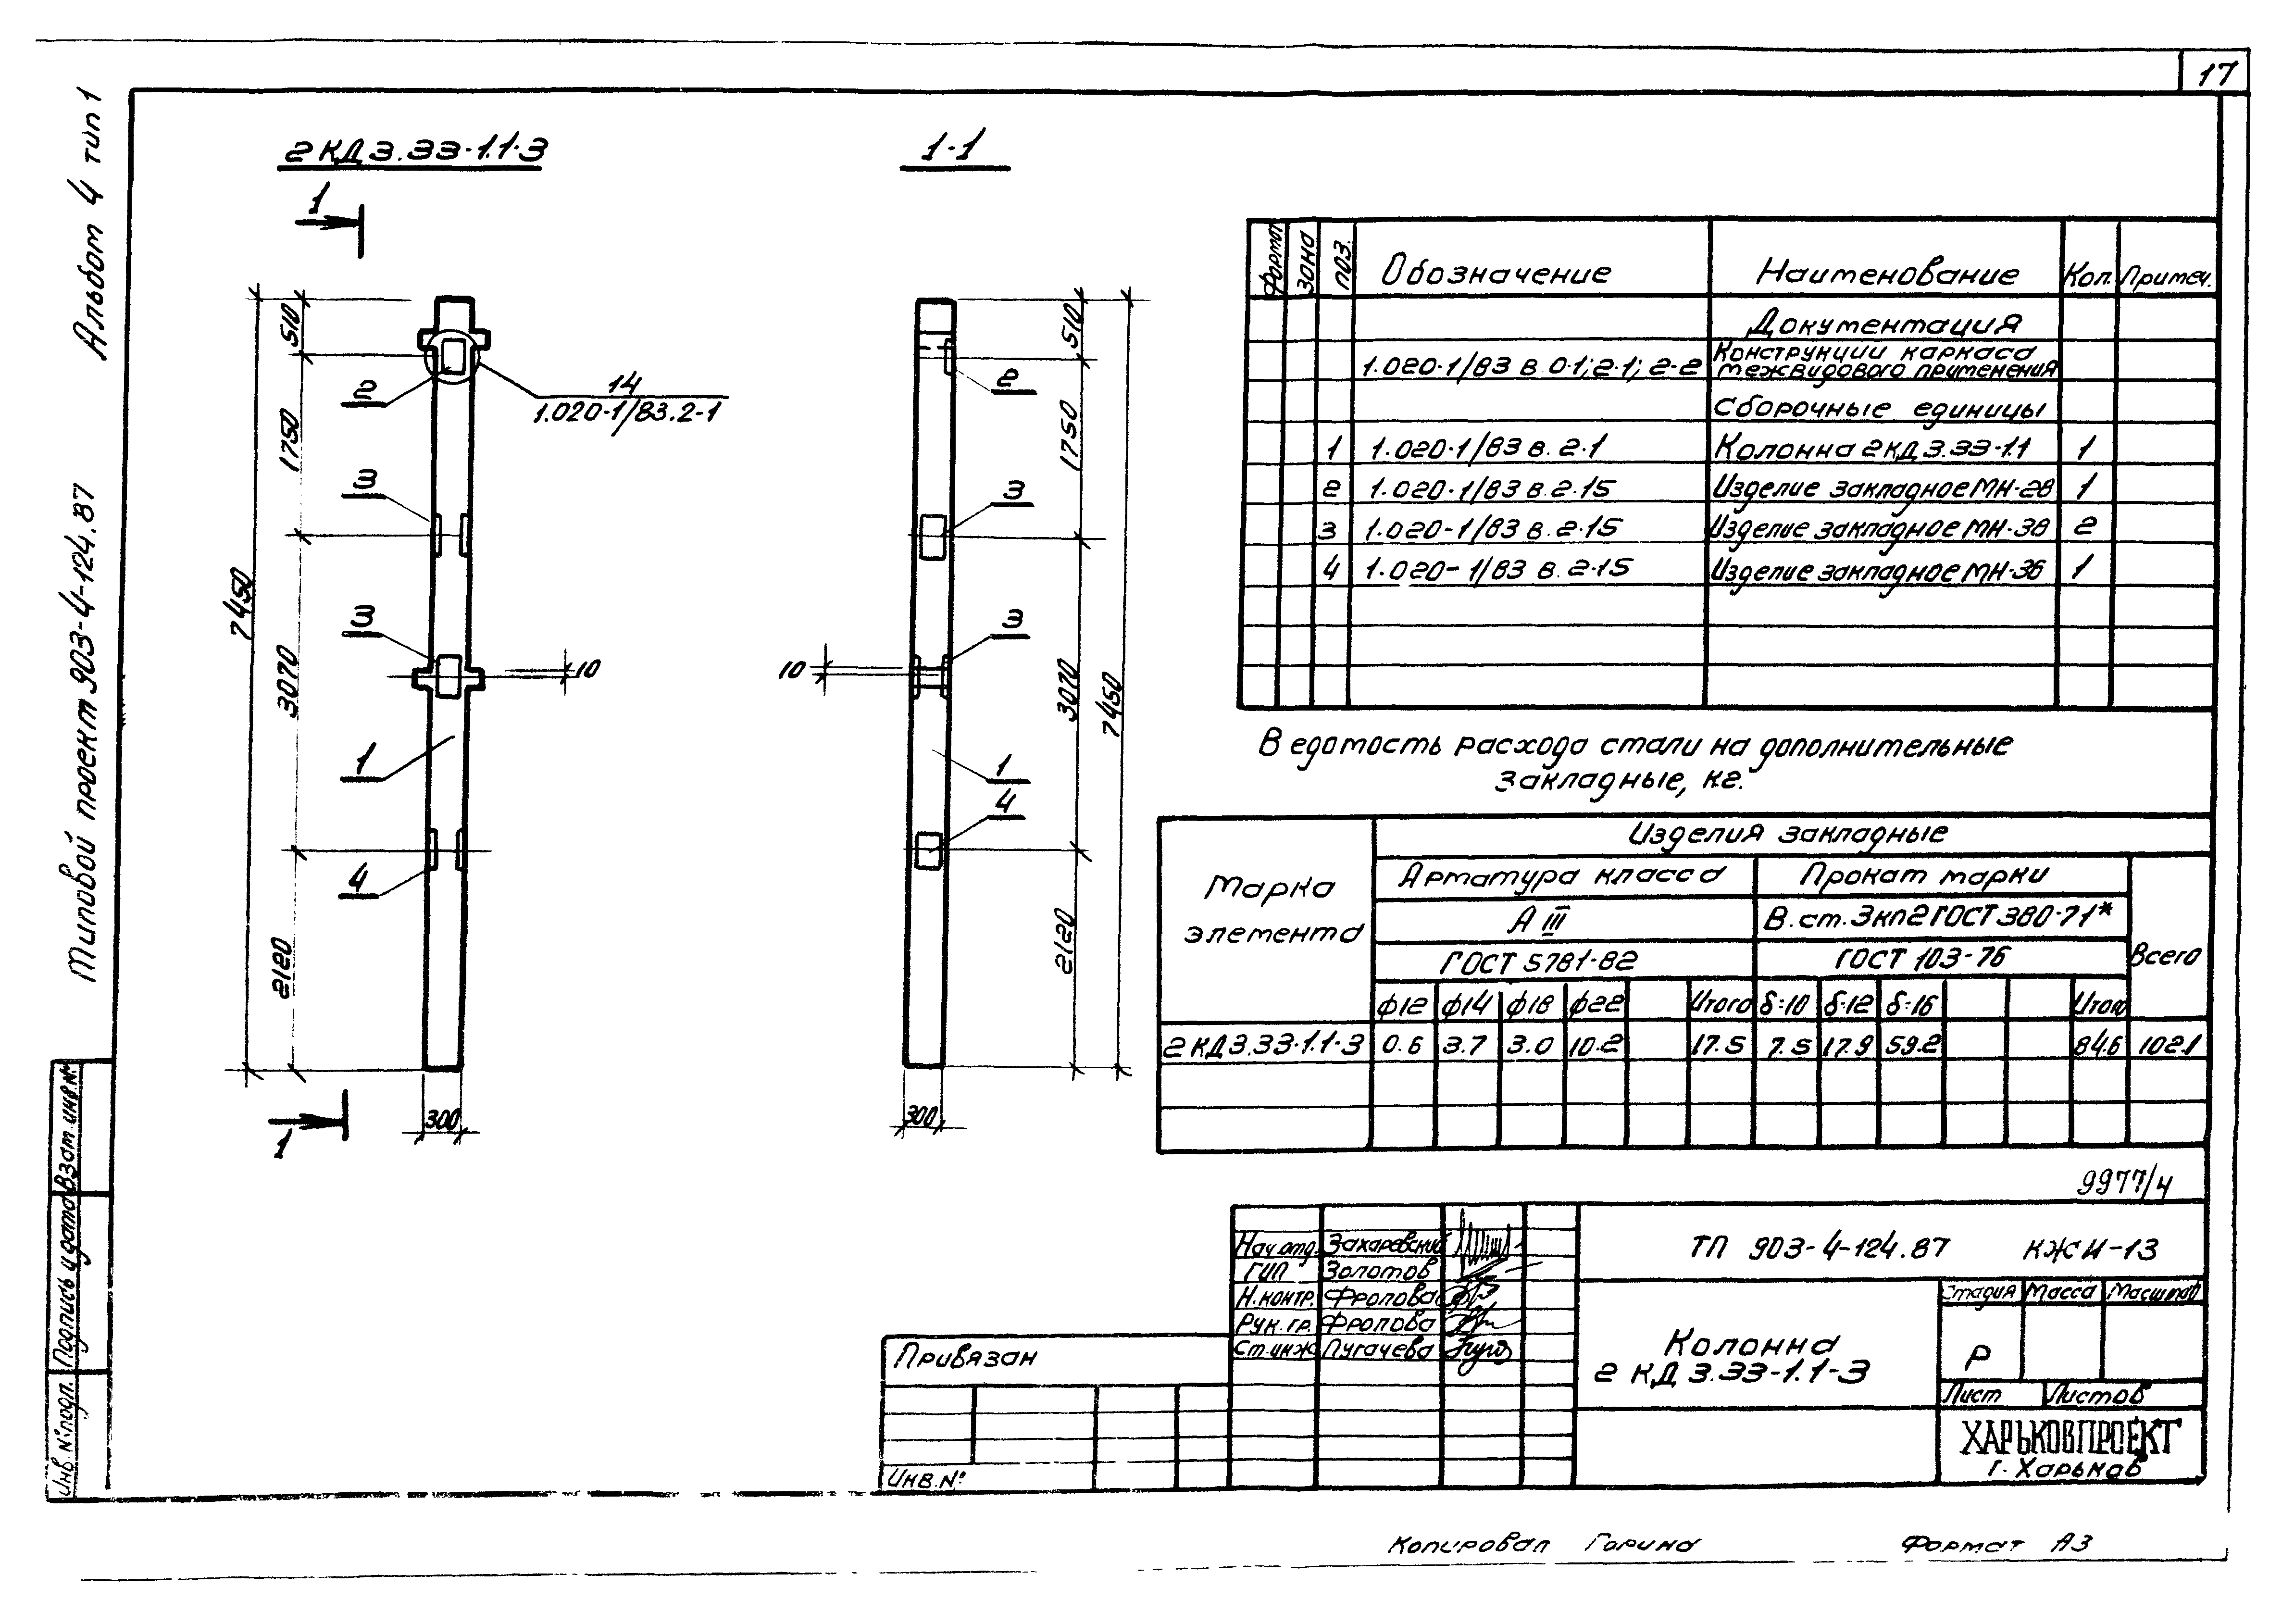 17
Альбом 4 тип 1
Типовой проект 903-4-124.87
2КД3.33-1.1-3
1-1
1
510
1750
3070
2120
7450
2
3
3
1
4
14
1.020-1/83.2-1
10
300
1
510
1750
3070
2120
7450
2
3
3
1
4
10
300
Формат Зона Поз. Обозначение Наименование Кол. Примеч.
Документация
1.020-1/83 в. 0-1; 2-1; 2-2 Конструкции каркаса
межвидового применения
Сборочные единицы
1 1.020-1/83 в. 2-1 Колонна 2КД3.33-1.1 1
2 1.020-1/83 в. 2-15 Изделие закладное МН-28 1
3 1.020-1/83 в. 2-15 Изделие закладное МН-38 2
4 1.020-1/83 в. 2-15 Изделие закладное МН-36 1
Ведомость расхода стали на дополнительные
закладные, кг.
Марка элемента Изделия закладные
Арматура класса Прокат марки Всего
А III В.ст.3кп2 ГОСТ 380-71*
ГОСТ 5781-82 ГОСТ 103-76
ф12 ф14 ф18 ф22 Итого δ=10 δ=12 δ=16 Итого
2КД3.33-1.1-3 0.6 3.7 3.0 10.2 17.5 7.5 17.9 59.2 84.6 102.1
9977/4
Нач.отд. Захаревский
ГИП Золотов
Н.контр. Фролова
Рук.гр. Фролова
Ст.инж Пугачева
ТП 903-4-124.87 КЖИ-13
Колонна
2КД3.33-1.1-3
Стадия Масса Масштаб
Р
Лист Листов
ХАРЬКОВПРОЕКТ
г. Харьков
Привязан
Инв.№
Взам.инв.№
Подпись и дата
Инв.№подл.
Копировал Горина Формат А3